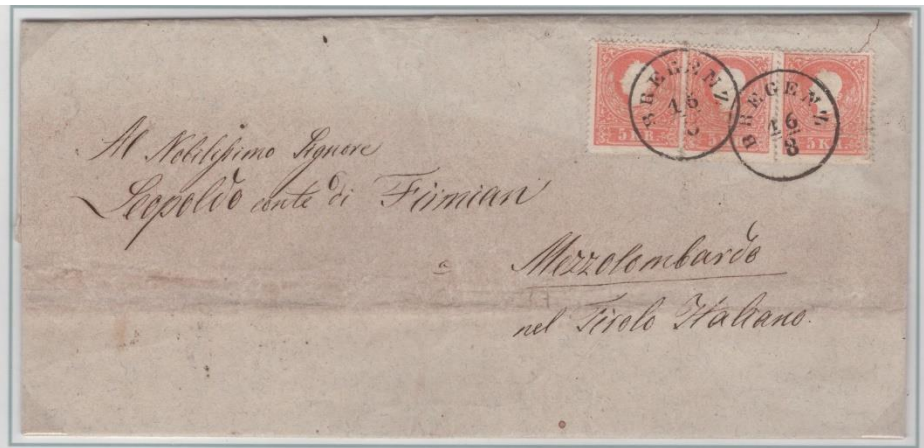 BREGENZ
16
BREGENZ
16
8
5 KR.
5 KR.
Al Nobilissimo Signore
Leopoldo conte di Firmian
a
Mezzolombardo
nel Tirolo Italiano.